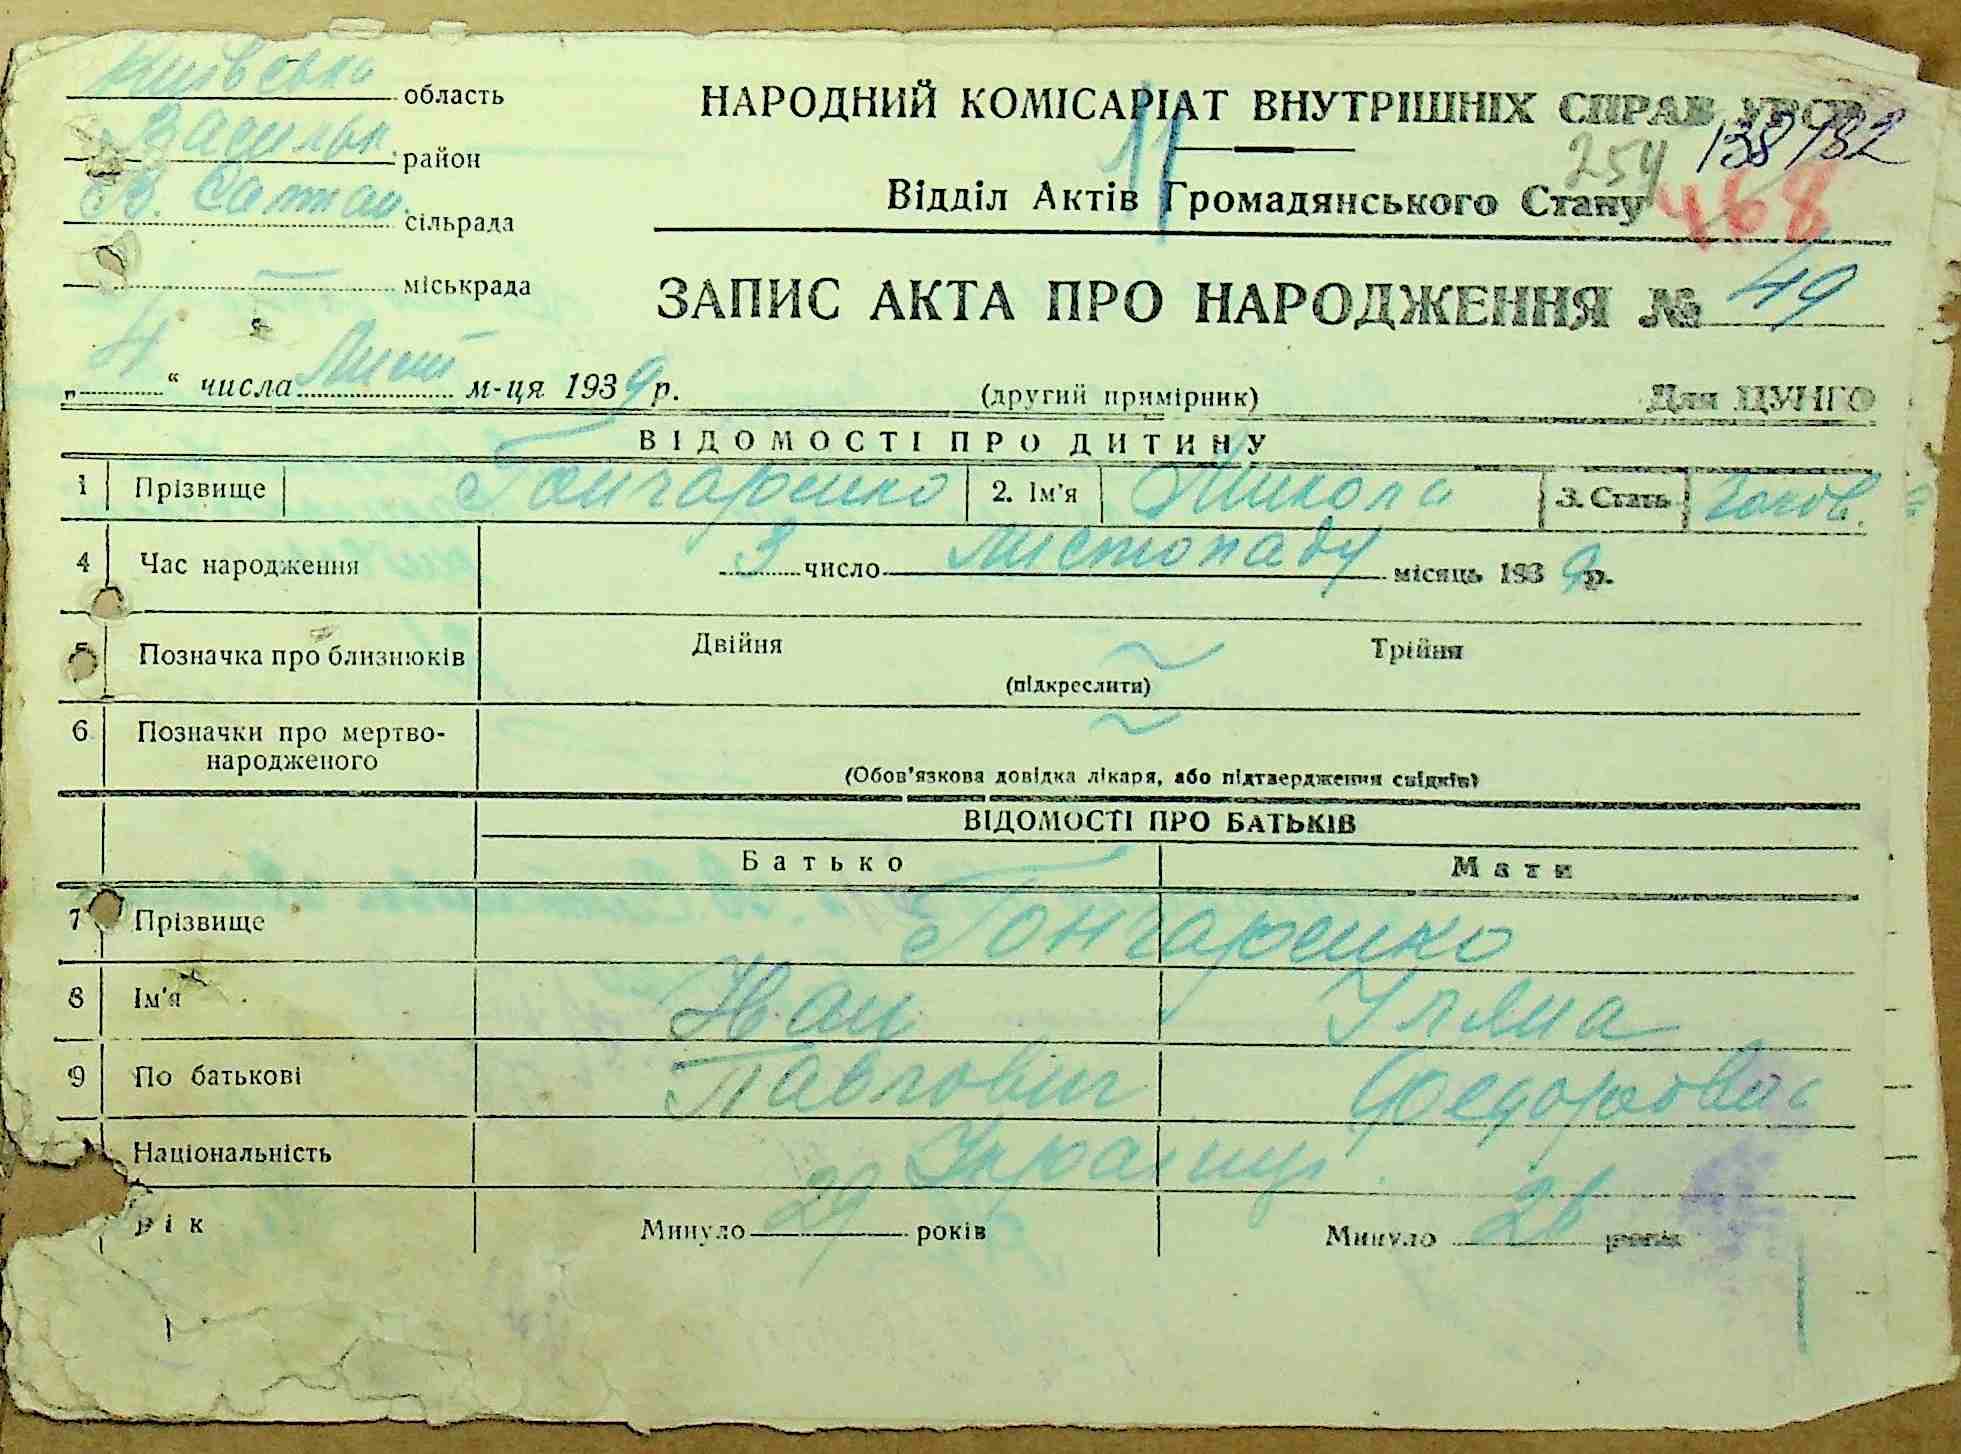 Київська область
Васильк. район
В. Солтан. сільрада
міськрада
НАРОДНИЙ КОМІСАРІАТ ВНУТРІШНІХ СПРАВ УРСР
11
254 138782
468
Відділ Актів Громадянського Стану
ЗАПИС АКТА ПРО НАРОДЖЕННЯ № 49
„4“ числа Лист м-ця 1939 р. (другий примірник) Для ЦУНГО
ВІДОМОСТІ ПРО ДИТИНУ
1 Прізвище Гончаренко 2. Ім'я Микола 3. Стать Чолов.
4 Час народження 3 число листопаду місяць 1939 р.
5 Позначка про близнюків Двійня ~ Трійня
(підкреслити)
6 Позначки про мертво-
народженого ~
(Обов'язкова довідка лікаря, або підтвердження свідків)
ВІДОМОСТІ ПРО БАТЬКІВ
Батько Мати
7 Прізвище Гончаренко
8 Ім'я Иван Уляна
9 По батькові Павлович Федоровна
Національність Українці
Рік Минуло 29 років Минуло 26 років